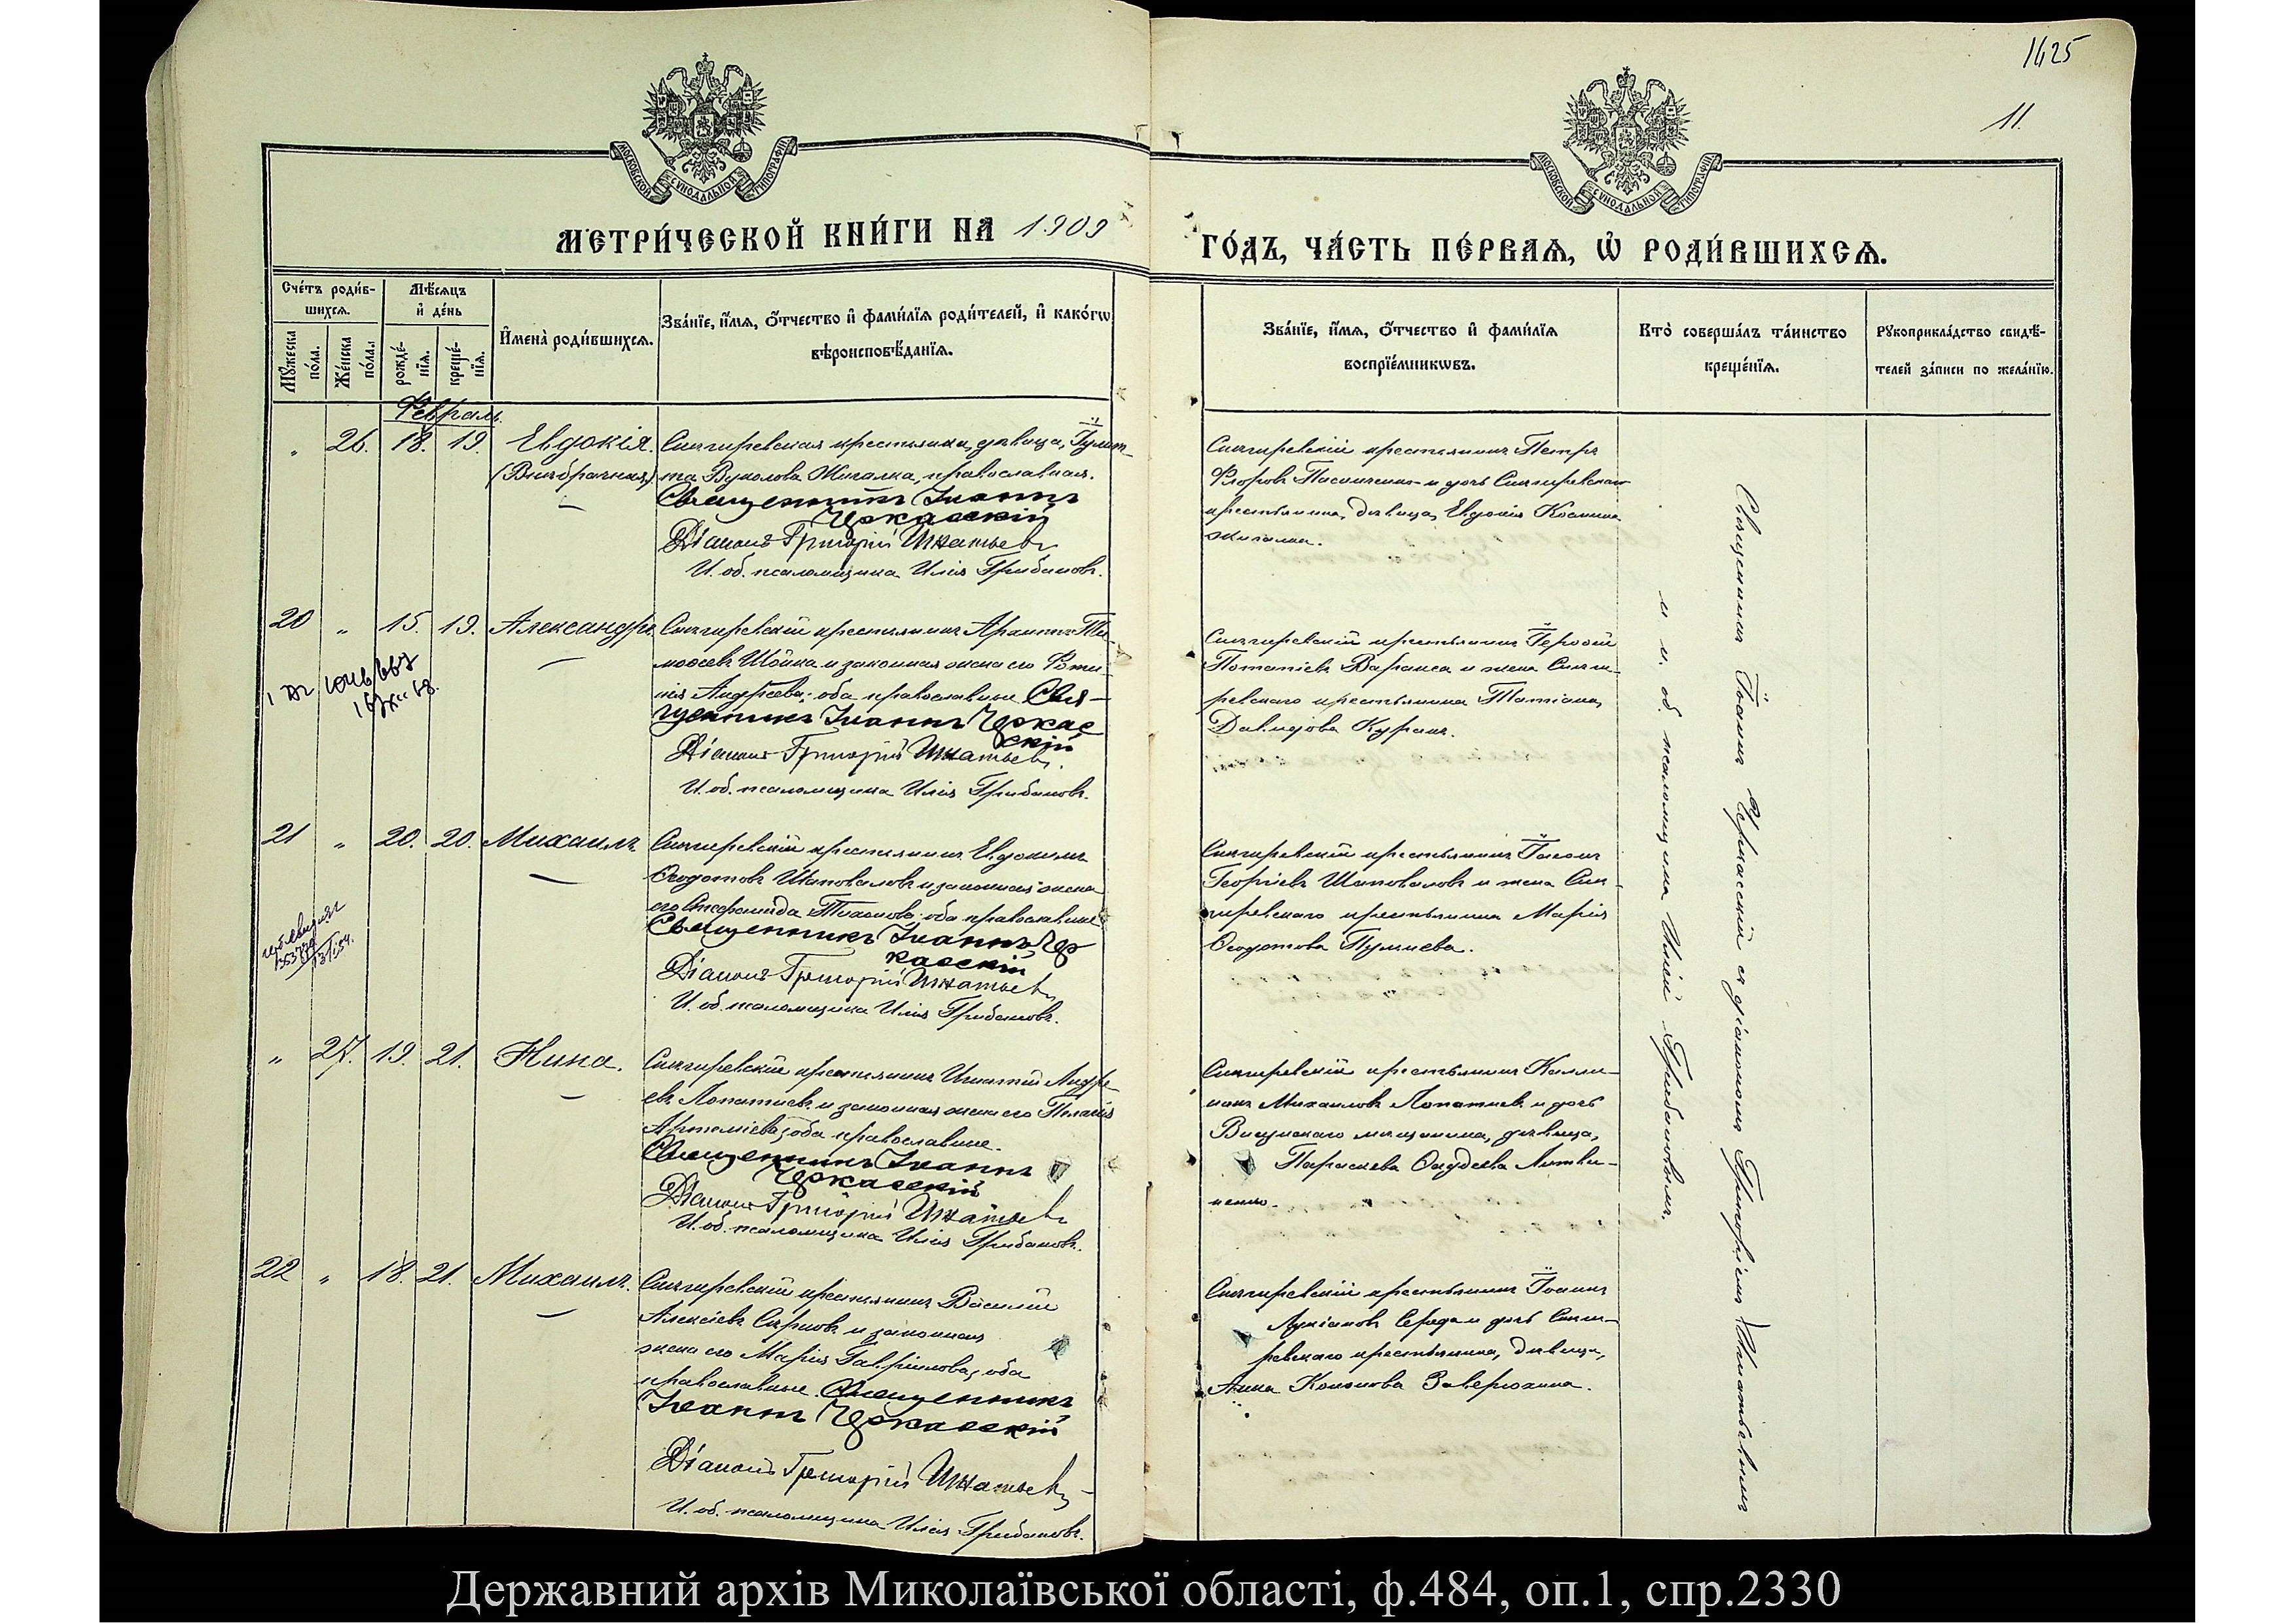 1425
11.
МОСКОВСКОЙ СУНОДАЛЬНОЙ ТИПОГРАФІИ
МОСКОВСКОЙ СУНОДАЛЬНОЙ ТИПОГРАФІИ
МЕТРИ́ЧЕСКОЙ КНИ́ГИ НА 1909
ГО́ДЪ, ЧА́СТЬ ПЕ́РВАѦ, Ѡ҆ РОДИ́ВШИХСѦ.
Сче́тъ роди́в-
шихсѧ.
Мꙋ́жеска по́ла.
Же́нска по́ла.
Мѣ́сѧцъ
и҆ де́нь
рожде́-
нїѧ.
креще́-
нїѧ.
И҆мена̀ роди́вшихсѧ.
Зва́нїе, и҆́мѧ, ѻ҆́тчество и҆ фами́лїѧ роди́телей, и҆ како́гѡ
вѣроисповѣ́данїѧ.
Зва́нїе, и҆́мѧ, ѻ҆́тчество и҆ фами́лїѧ
воспрїе́мникѡвъ.
Кто̀ соверша́лъ та́инство
креще́нїѧ.
Рꙋкоприкла́дство свидѣ́-
телей за́писи по жела́нїю.
Февраль.
„ 26. 18. 19. Евдокія.
(Внѣбрачная)
Снигиревская крестьянка, дѣвица, Іулит-
та Вуколова Жигалка, православная.
Священникъ Іоаннъ
Черкасскій
Діаконъ Григорій Игнатьевъ
И. об. псаломщика Илія Грибановъ.
Снигиревскій крестьянинъ Петръ
Флоровъ Пасичникъ и дочь Снигиревскаго
крестьянина, дѣвица, Евдокія Космина
Жигалка.
20 „ 15. 19. Александръ.
Снигиревскій крестьянинъ Архиппъ Ти-
моѳеевъ Шойка и законная жена его Фоти-
нія Андреева; оба православные. Свя-
щенникъ Іоаннъ Черкас
скій
Діаконъ Григорій Игнатьевъ.
И. об. псаломщика Илія Грибановъ.
Снигиревскій крестьянинъ
Потапіевъ и жена Сниги-
ревскаго крестьянина Татіана
Давидова
21 „ 20. 20. Михаилъ
Снигиревскій крестьянинъ Евдокимъ
Ѳеодотовъ Шаповаловъ и законная жена
его Тихонова; оба православные
Священникъ Іоаннъ Чер
касскій
Діаконъ Григорій Игнатьевъ
И. об. псаломщика Илія Грибановъ.
Снигиревскій крестьянинъ Іоаннъ
Георгіевъ Шаповаловъ и жена Сни-
гиревскаго крестьянина Марія
Ѳеодотова
„ 27. 19. 21. Нина.
Снигиревскій крестьянинъ Игнатій Андре-
евъ Лопатневъ и законная жена его Пелагія
Артеміева; оба православные.
Священникъ Іоаннъ
Черкасскій
Діаконъ Григорій Игнатьевъ
И. об. псаломщика Илія Грибановъ.
Снигиревскій крестьянинъ Калли-
никъ Михаиловъ Лопатневъ и дочь
Висунскаго мѣщанина, дѣвица,
Параскева Литви-
ненко.
22 „ 18. 21. Михаилъ.
Снигиревскій крестьянинъ Василій
Алексіевъ и законная
жена его Марія Гавріилова, оба
православные. Священникъ
Іоаннъ Черкасскій
Діаконъ Григорій Игнатьевъ
И. об. псаломщика Илія Грибановъ.
Снигиревскій крестьянинъ Іоаннъ
Лукіановъ Середа и дочь Сниги-
ревскаго крестьянина, дѣвица,
Анна Кононова Заверюхина.
Священникъ Іоаннъ Черкасскій съ діакономъ Григоріемъ Игнатьевымъ
и и. об. псаломщика Иліей Грибановымъ.
Державний архів Миколаївської області, ф.484, оп.1, спр.2330